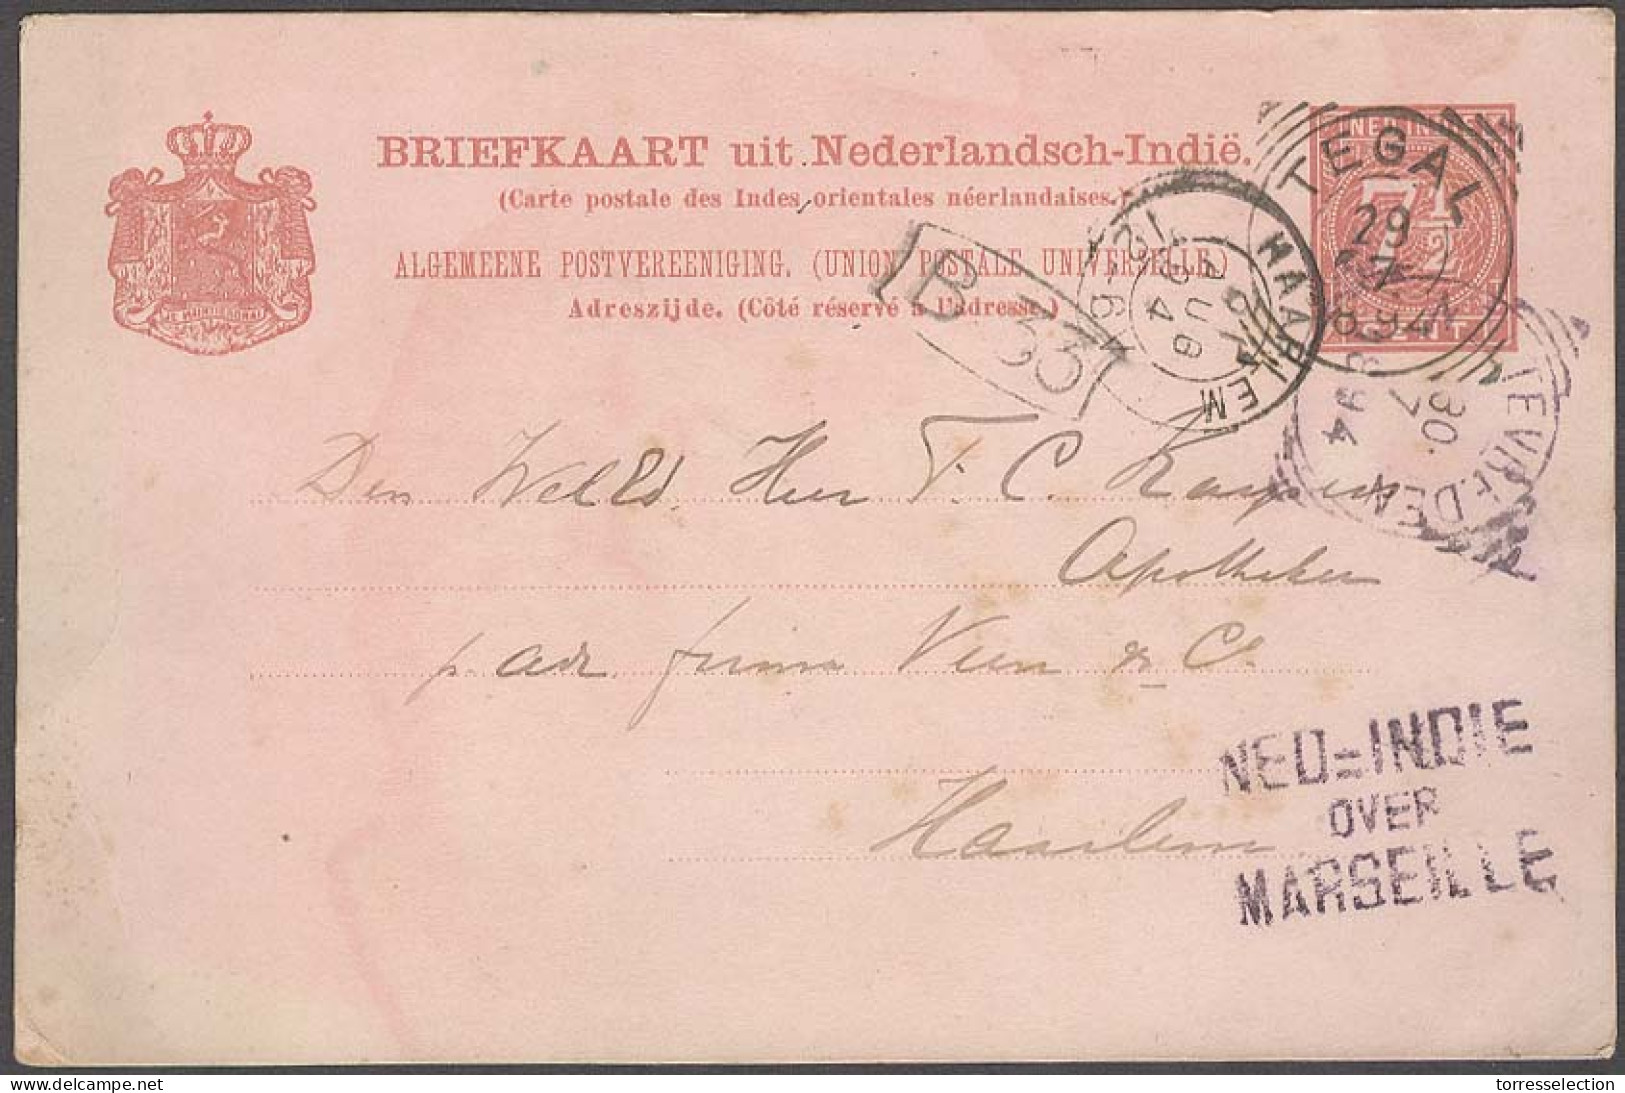 BRIEFKAART uit Nederlandsch-Indië.
(Carte postale des Indes orientales néerlandaises.)
ALGEMEENE POSTVEREENIGING. (UNION POSTALE UNIVERSELLE.)
Adreszijde. (Côté réservé à l'adresse.)
JE MAINTIENDRAI
NED-INDIE
7½
CENT
TEGAL
29
7
94
HAARLEM
AUG
94
B 33
WELTEVREDEN
30.
7
94
Den Heer F. C.
Apotheker
p. adr. firma Veen & Co
Haarlem
NED=INDIE
OVER
MARSEILLE
delcampe.net
torresselection